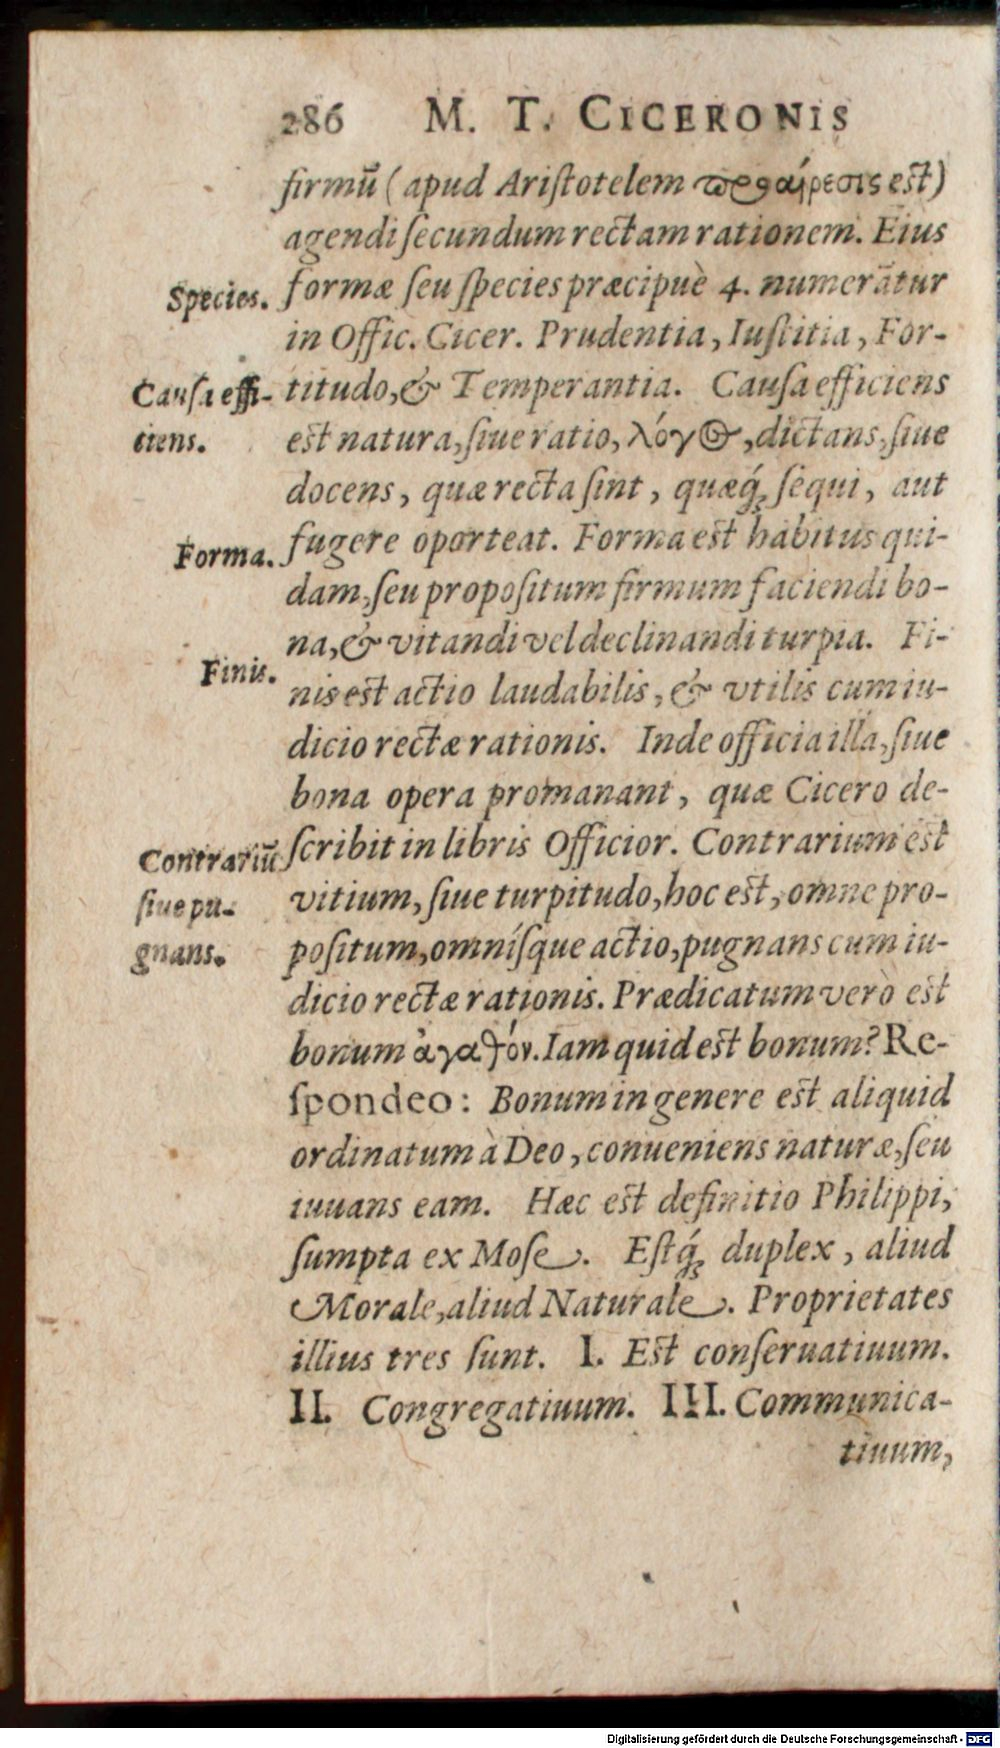 286 M. T. CICERONIS
firmũ (apud Aristotelem προαίρεσις est)
agendi secundum rectam rationem. Eius
Species. formæ seu species præcipuè 4. numerãtur
in Offic. Cicer. Prudentia, Iustitia, For-
Causa effi- titudo, & Temperantia. Causa efficiens
ciens. est natura, siue ratio, λόγος, dictans, siue
docens, quæ recta sint, quæq́; sequi, aut
Forma. fugere oporteat. Forma est habitus qui-
dam, seu propositum firmum faciendi bo-
na, & vitandi vel declinandi turpia. Fi-
Finis. nis est actio laudabilis, & vtilis cum iu-
dicio rectæ rationis. Inde officia illa, siue
bona opera promanant, quæ Cicero de-
Contrariũ scribit in libris Officior. Contrarium est
siue pu- vitium, siue turpitudo, hoc est, omne pro-
gnans. positum, omnísque actio, pugnans cum iu-
dicio rectæ rationis. Prædicatum verò est
bonum ἀγαθόν. Iam quid est bonum? Re-
spondeo: Bonum in genere est aliquid
ordinatum à Deo, conueniens naturæ, seu
iuuans eam. Hæc est definitio Philippi,
sumpta ex Mose. Estq́; duplex, aliud
Morale, aliud Naturale. Proprietates
illius tres sunt. I. Est conseruatiuum.
II. Congregatiuum. III. Communica-
tiuum,
Digitalisierung gefördert durch die Deutsche Forschungsgemeinschaft - DFG